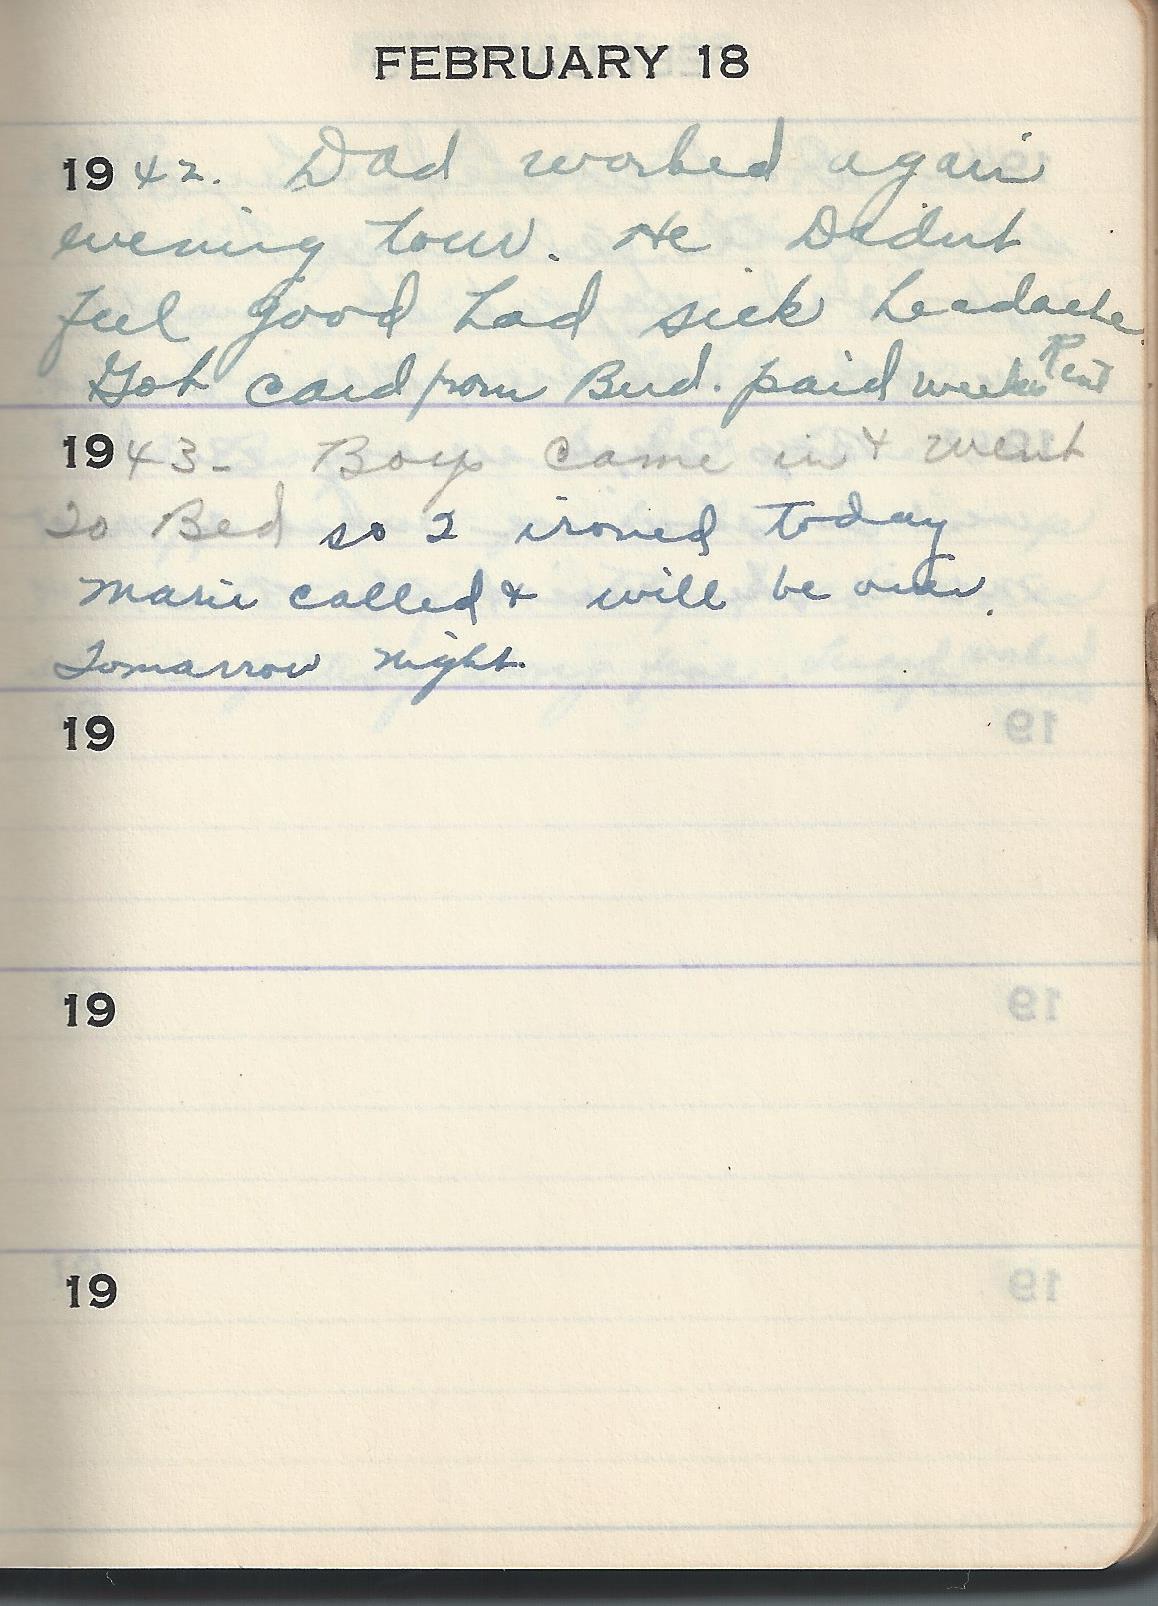 FEBRUARY 18
1942. Dad worked again
evening tour. He Didnt
feel good had sick headache
Got card from Bud. paid weeks Rent
1943- Boys came in & went
to Bed so I ironed today
Marie called & will be over.
Tomarrow night.
19
19
19